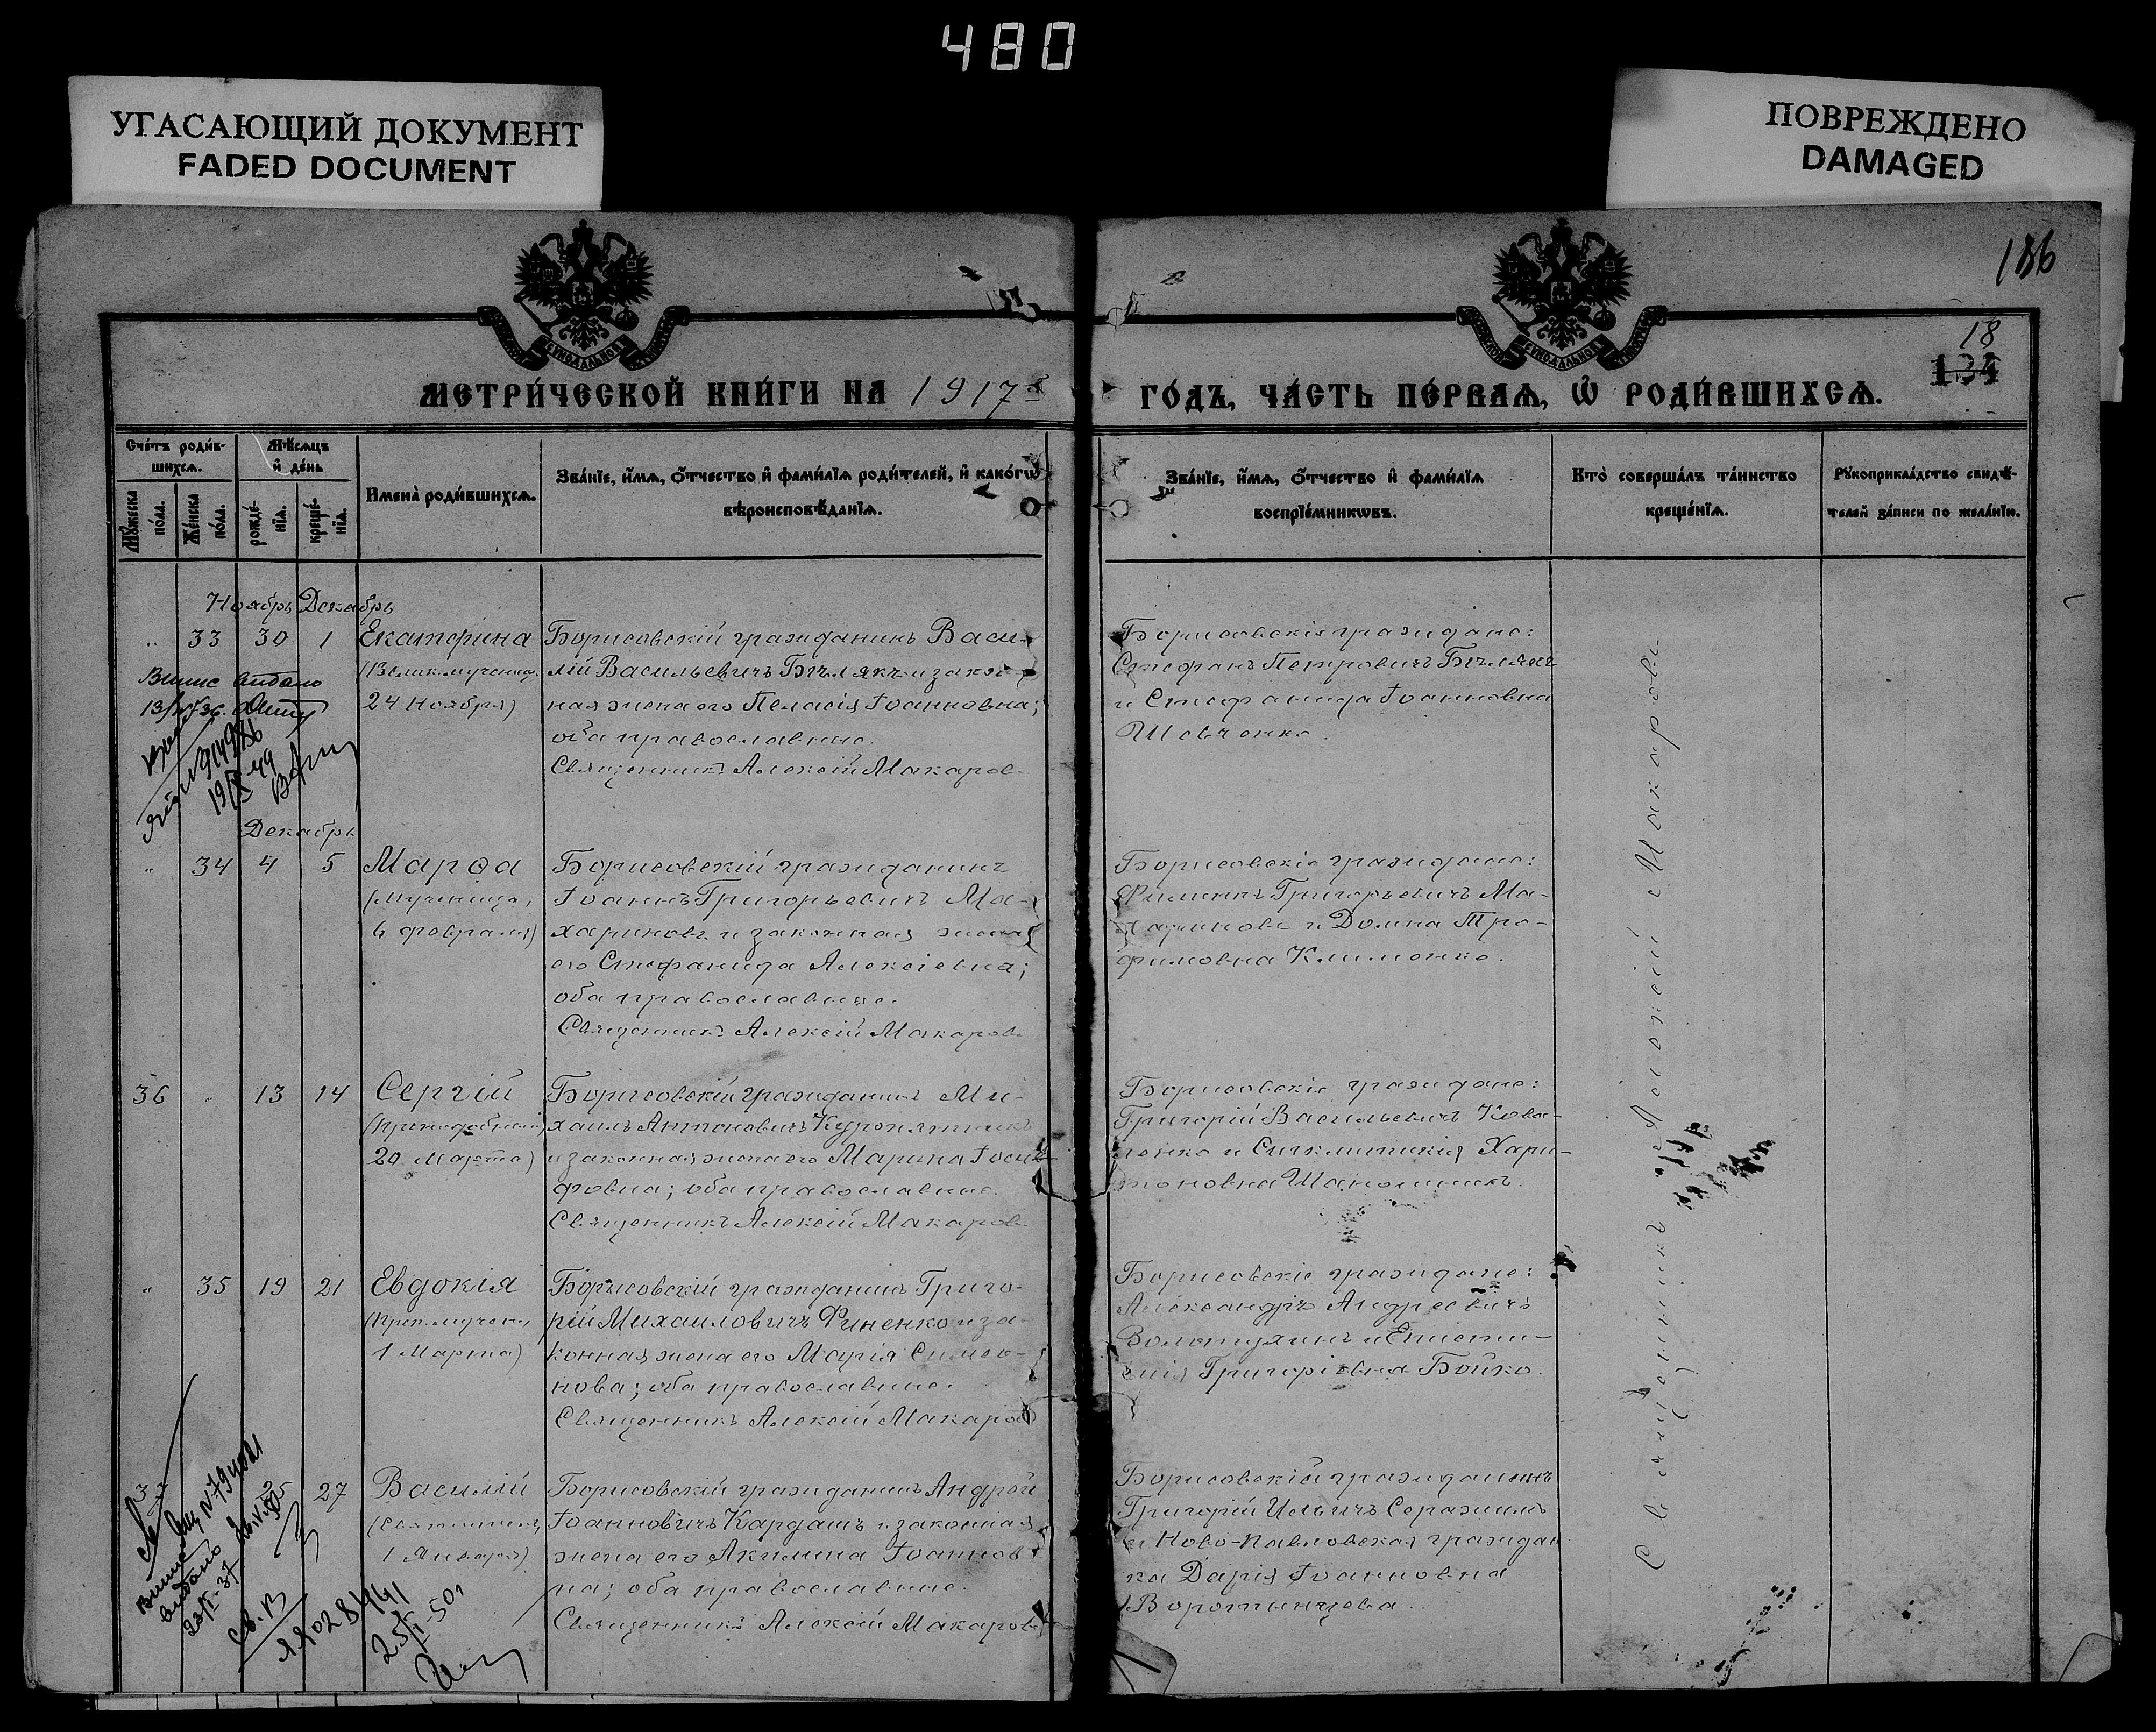 480
УГАСАЮЩИЙ ДОКУМЕНТ
FADED DOCUMENT
ПОВРЕЖДЕНО
DAMAGED
186
18
134
МЕТРИ́ЧЕСКОЙ КНИ́ГИ НА 1917 г.
ГО́ДЪ, ЧА́СТЬ ПЕ́РВАѦ, Ѡ҆ РОДИ́ВШИХСѦ.
Сче́тъ роди́в-
шихсѧ.
Мѣ́сѧцъ
и҆ де́нь
Мꙋ́жеска
по́ла.
Же́нска
по́ла.
рожде́-
нїѧ.
креще́-
нїѧ.
Имена̀ роди́вшихсѧ.
Зва́нїе, и҆́мѧ, ѻ҆́тчество и҆ фами́лїѧ роди́телей, и҆ како́гѡ
вѣроисповѣ́данїѧ.
Зва́нїе, и҆́мѧ, ѻ҆́тчество и҆ фами́лїѧ
воспрїе́мникѡвъ.
Кто̀ соверша́лъ та́инство
креще́нїѧ.
Рꙋкоприкла́дство свидѣ́-
телей за́писи по жела́нїю.
Ноябрь Декабрь
" 33 30 1 Екатерина
(Великомученица
24 Ноября)
Борисовскій гражданинъ Васи-
лій Васильевичъ Бѣлякъ и закон-
ная жена его Пелагія Іоанновна;
оба православные.
Священникъ Алексій Макаровъ
Борисовскіе граждане:
Стефанъ Петровичъ Бѣлякъ
и Стефанида Іоанновна
Шевченко.
выдано
Декабрь
" 34 4 5 Марѳа
(мученица,
6 февраля)
Борисовскій гражданинъ
Іоаннъ Григорьевичъ Ма-
хариновъ и законная жена
его Стефанида Алексіевна;
оба православные.
Священникъ Алексій Макаровъ
Борисовскіе граждане:
Филиппъ Григорьевичъ Ма-
хариновъ и Домна Тро-
фимовна Клименко.
36 " 13 14 Сергій
(Преподобный,
20 Марта)
Борисовскій гражданинъ Ми-
хаилъ Антоновичъ
и законная жена его Марина Іоси-
фовна; оба православные.
Священникъ Алексій Макаровъ
Борисовскіе граждане:
Григорій Васильевичъ Кова-
ленко и Синклитикія Хари-
тоновна
" 35 19 21 Евдокія
(Препмучен.,
1 Марта)
Борисовскій гражданинъ Григо-
рій Михаиловичъ Финенко и за-
конная жена его Марія Симео-
нова; оба православные.
Священникъ Алексій Макаровъ
Борисовскіе граждане:
Александръ Андреевичъ
Золотухинъ и Еписти-
мія Григоріевна Бойко.
25 27 Василій
(Святитель,
1 Января)
Борисовскій гражданинъ Андрей
Іоанновичъ Кардашъ и законная
жена его Акилина Іоаннов-
на; оба православные.
Священникъ Алексій Макаровъ
Борисовскій гражданинъ
Григорій Ильичъ Серажимъ
и Ново-Павловская граждан-
ка Дарія Іоанновна
Воротынцева.
Священникъ Алексій Макаровъ